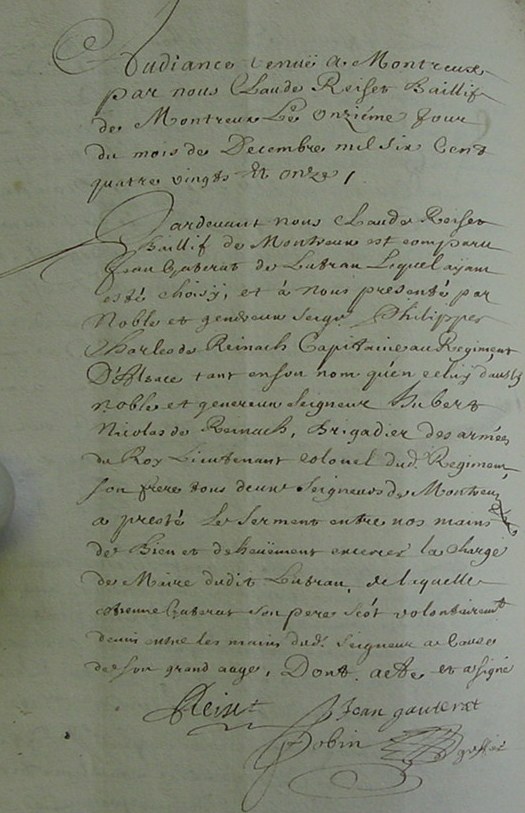 Audiance tenuë a Montreux
par nous Claude Reiset Baillif
de Montreux Le onziéme Jour
du mois de Decembre mil six Cent
quatre vingts et onze,
Pardevant nous Claude Reiset
Baillif de Montreux est comparu
Jean Gaterat de Lutran Lequel ayant
esté choisy, et à nous presenté par
Noble et genereux Seigr Philippe
Charles de Reinach Capitaine au Regiment
D'Alsace tant en son nom qu'en celuy dautres
noble et genereux Seigneur Hubert
Nicolas de Reinach, Brigadier des armées
du Roy Lieutenant colonel dud. Regiment,
son frere tous deux Seigneurs de Montreux
a presté Le Serment entre nos mains
de Bien et deheüement excercer la Charge
de Maire dudit Lutran, de laquelle
Etienne Gaterat son pere s'est volontairemt
demis entre les mains dud. Seigneur a Cause
de son grand aage, Dont acte et a signé
Reiset Jean gauterat
Bobin greffié